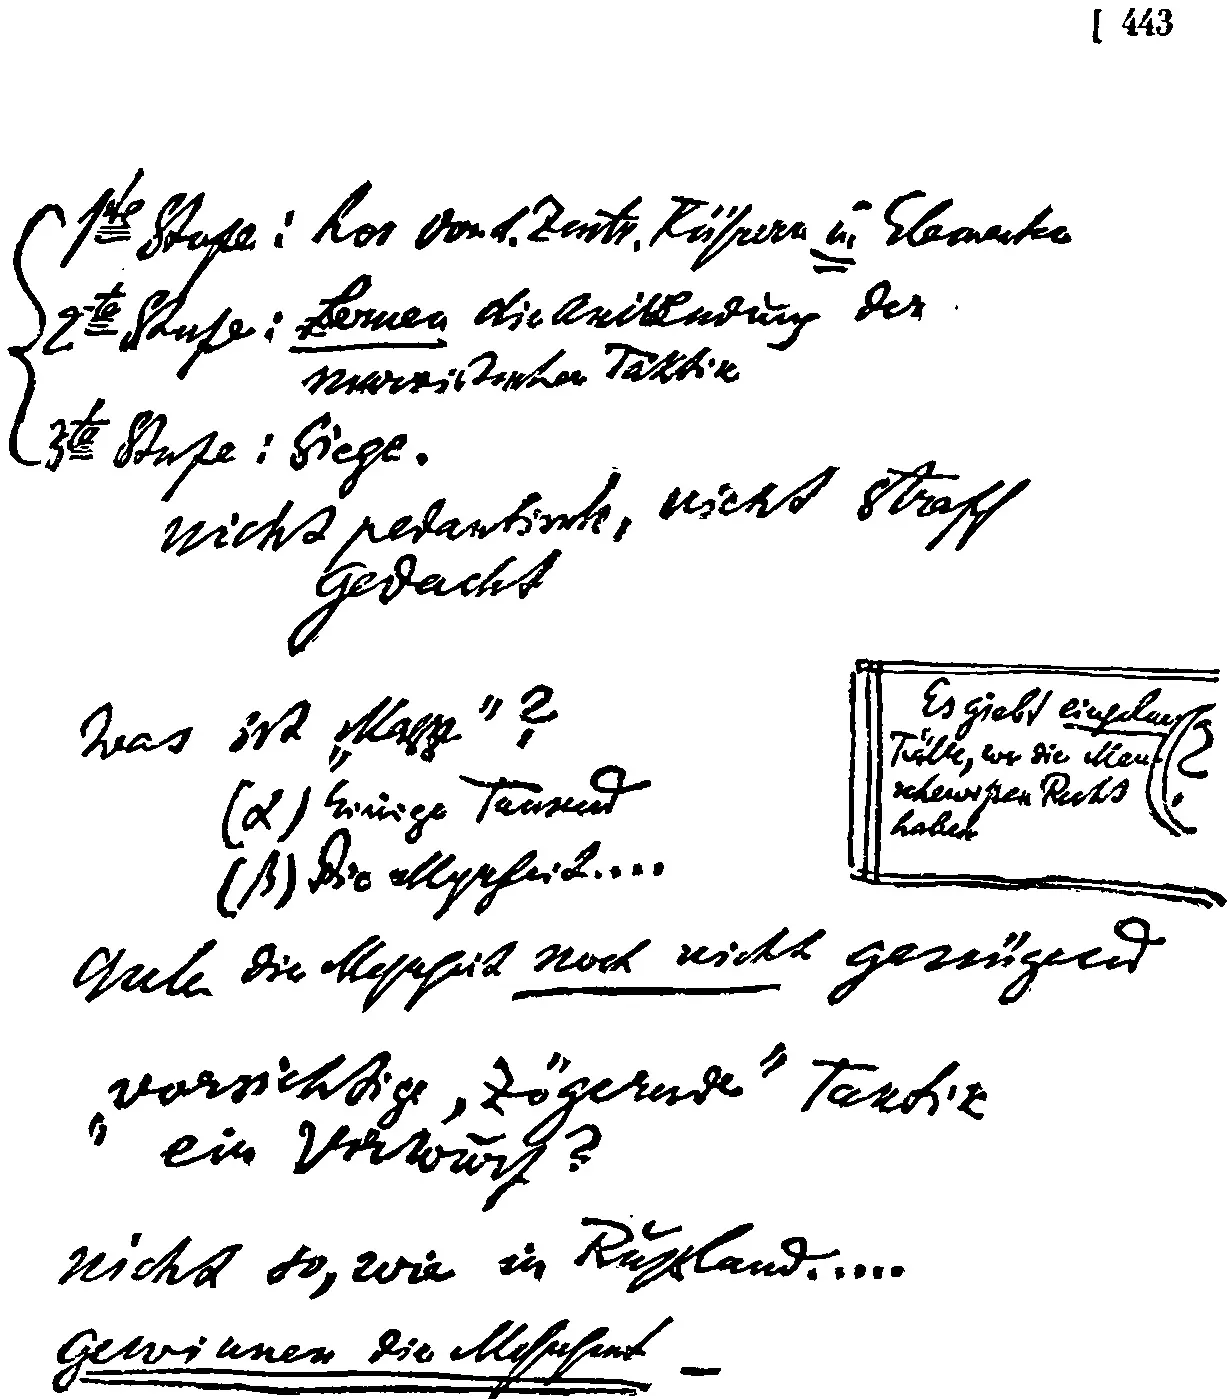 [ 443
1ste Stufe: Los von d. Zentr. Führern u Elementen
2te Stufe: Lernen die Anwendung der
marxistischen Taktik
3te Stufe: Siege.
nicht pedantisch, nicht straff
gedacht
Was ist „Masse"?
(α) Einige Tausend
(β) Die Mehrheit....
Es giebt einzelne
Fälle, wo die Men-
schewisten Recht
haben
(?
die Mehrheit noch nicht genügend
„vorsichtige, zögernde" Taktik
ein Vorwurf?
nicht so, wie in Russland.....
Gewinnen die Mehrheit —